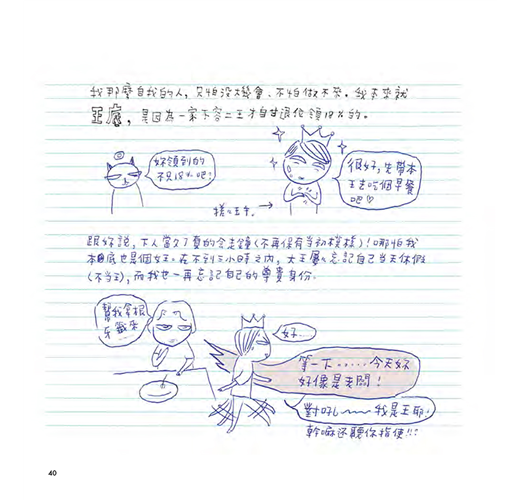 我那麼自我的人，只怕沒機會、不怕做不來。我本來就
王處，是因為一家不容二王才自甘退化領18%的。
妳領到的
不只18%吧!
很好,先帶本
王去吃個早餐
吧♡
樣の王子。→
跟妳說，下人當久了真的會走鐘(不再保有當初模樣)!哪怕我
本處也是個女王。在不到三小時之內，大王屢次忘記自己當天休假
(不當王),而我也一再忘記自己的尊貴身份。
幫我拿根
牙籤來
好...
等一下.....今天妳
好像是老闆!
對ㄋㄟ~~我是王耶!
幹嘛還聽你指使!!!
40